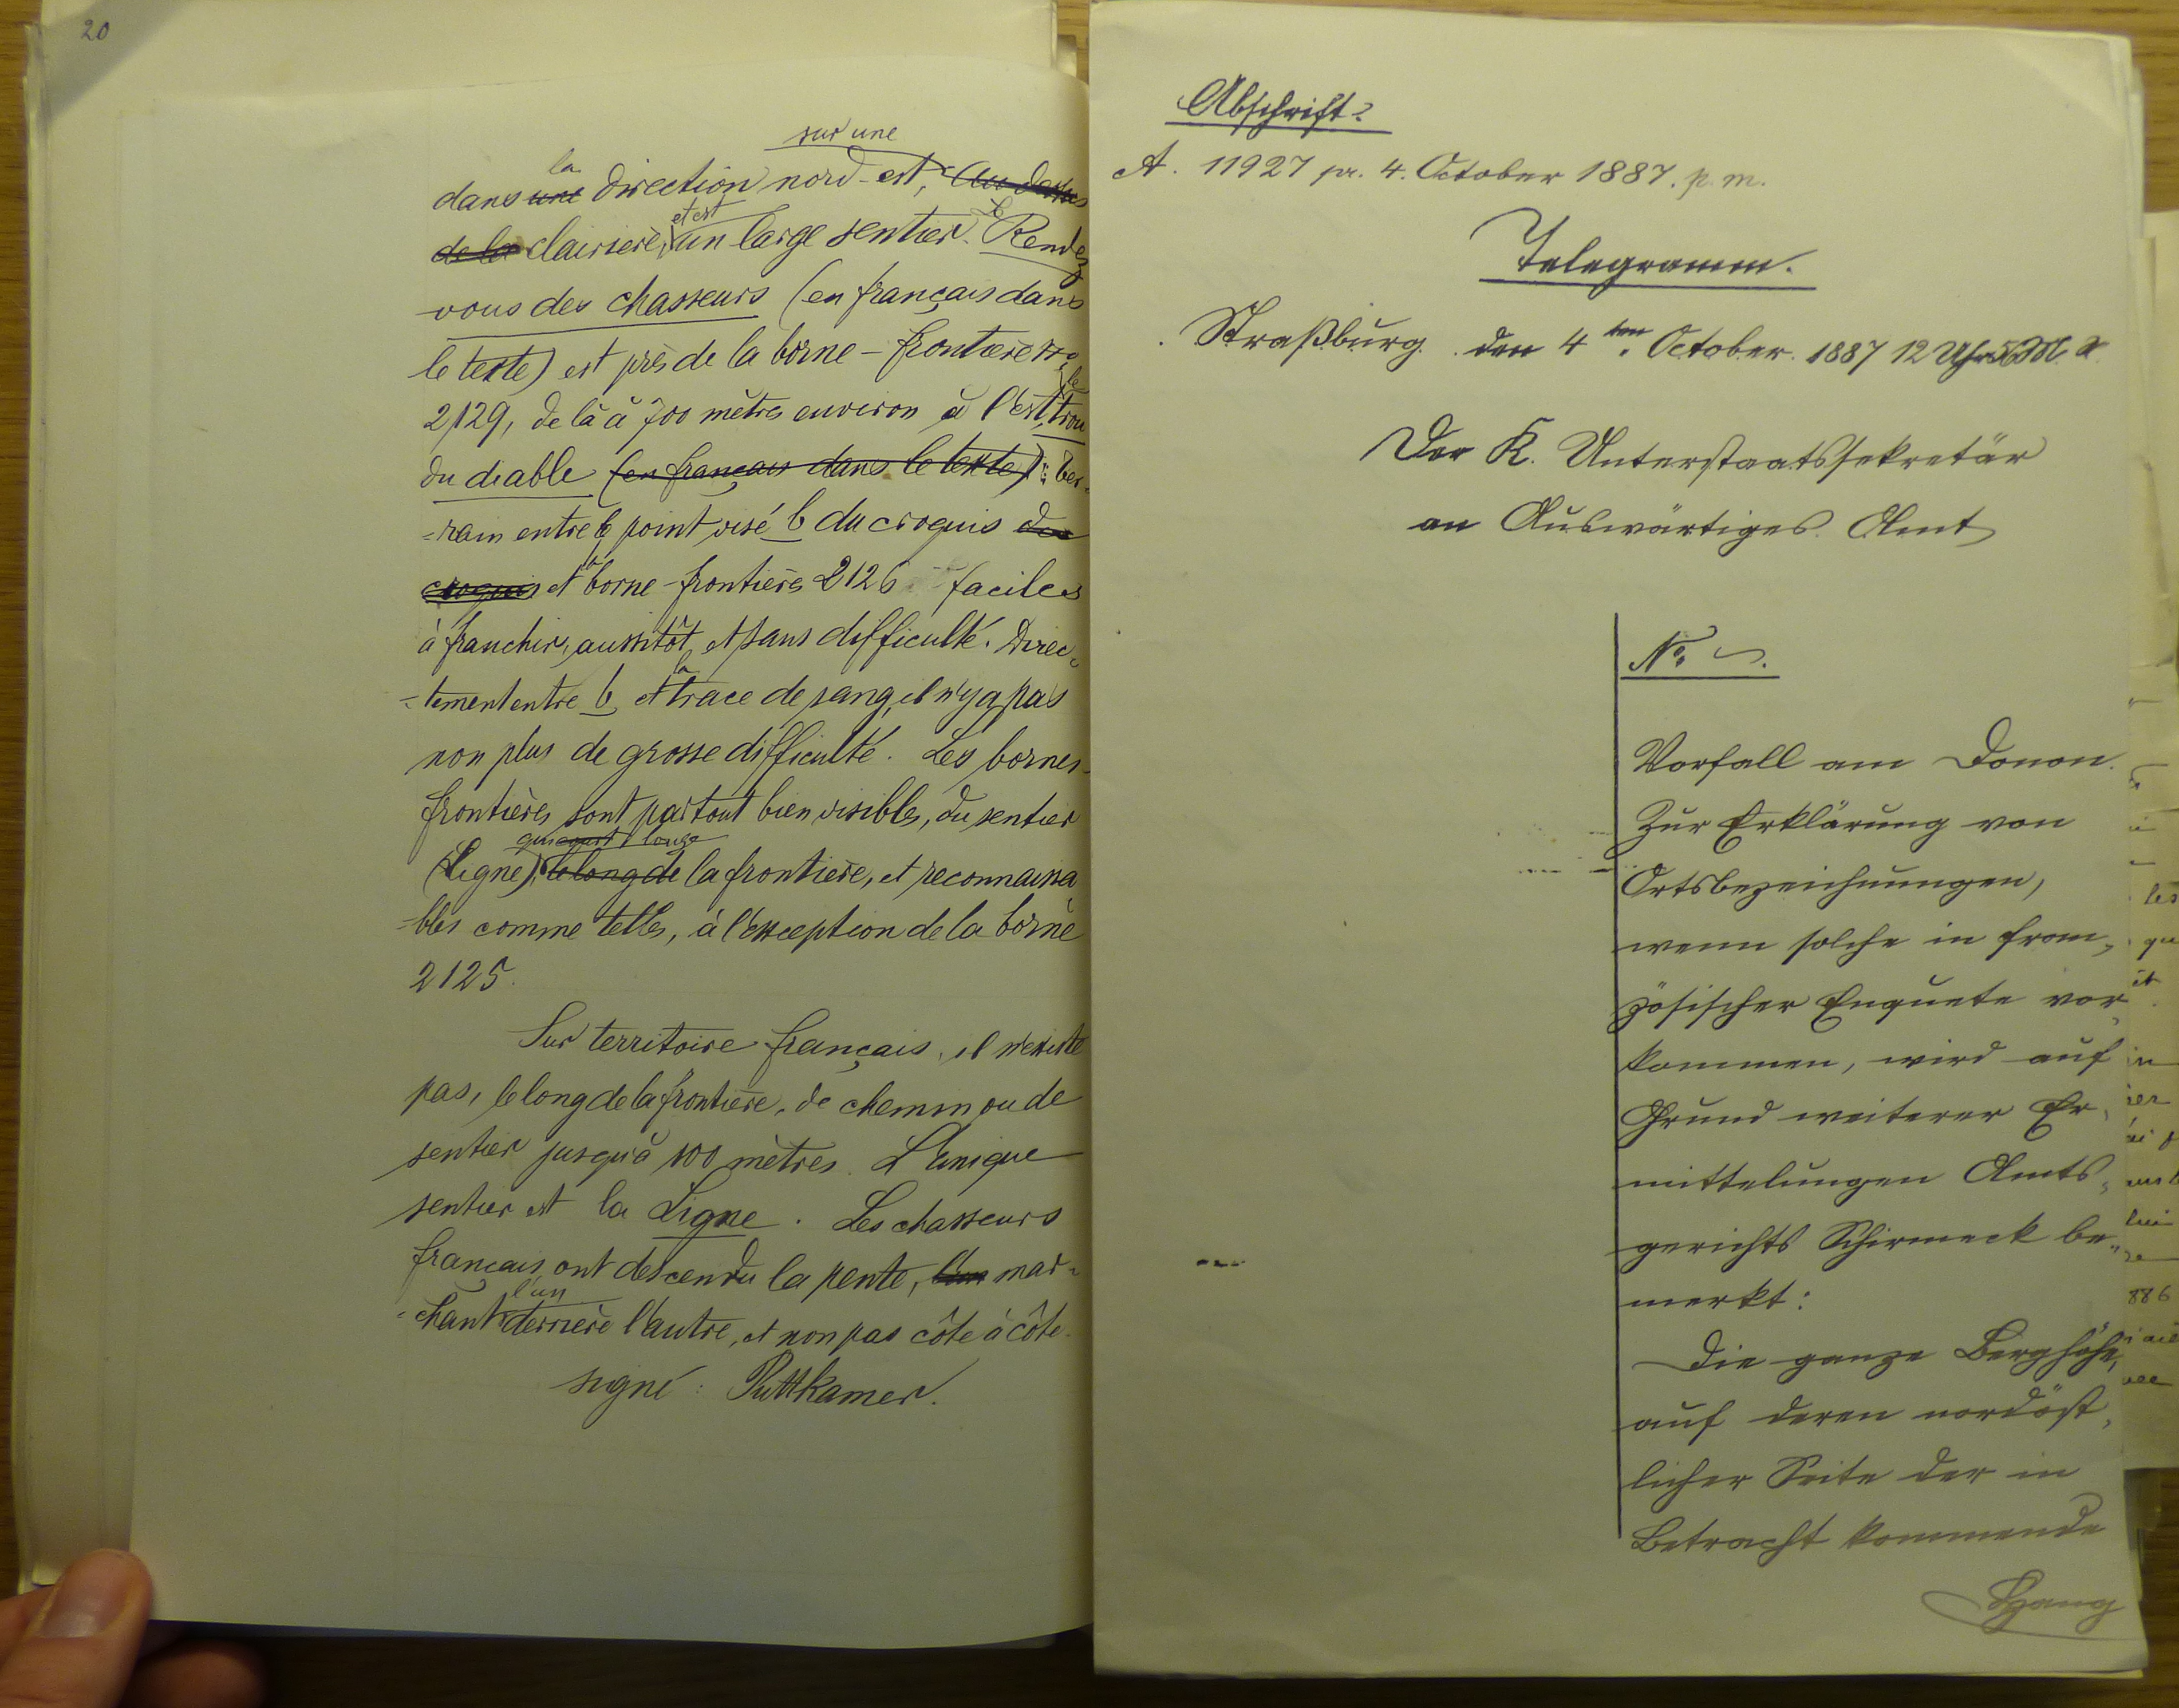 20
sur une
la
dans une direction nord-est, Au dessus
et est Le
de la clairière, un large sentier. Rendez
vous des chasseurs (en français dans
le texte) est près de la borne-frontière No
le
2129, de là à 700 mètres environ à l'est, trou
du diable (en français dans le texte): Ter-
-rain entre le point visé b du croquis des
la
croquis et borne-frontière 2126 faciles
à franchir, aussitôt, et sans difficulté. Direc-
la
-tement entre b et trace de sang, il n'y a pas
non plus de grosse difficulté. Les bornes-
frontières sont partout bien visibles, du sentier
qui longe
(Ligne), le long de la frontière, et reconnaissa
-bles comme telles, à l'exception de la borne
2125.
Sur territoire français, il n'existe
pas, le long de la frontière, de chemin ou de
sentier jusqu'à 100 mètres. L'unique
sentier est la Ligne. Les chasseurs
français ont descendu la pente, l'un mar-
l'un
-chant derrière l'autre, et non pas côte à côte.
signé: Puttkamer.
Abschrift.
A. 11927 pr. 4. October 1887. p. m.
Telegramm.
Straßburg den 4ten October 1887 12 Uhr M.
Der K. Unterstaatssekretär
an Auswärtiges Amt
No.
Vorfall am Donon.
Zur Erklärung von
Ortsbezeichnungen,
wenn solche in fran-
zösischer Enquete vor-
kommen, wird auf
Grund weiterer Er-
mittelungen Amts-
gerichts Schirmeck be-
merkt:
Die ganze Berghöhe,
auf deren nordöst-
licher Seite der in
Betracht kommende
Hang
les
qu
et
in
886